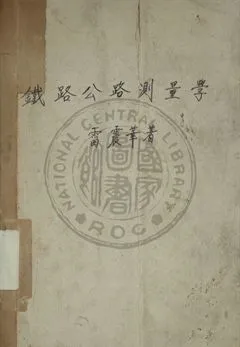 鐵路公路測量學
雷震華著
NATIONAL CENTRAL LIBRARY
ROC
國家圖書館